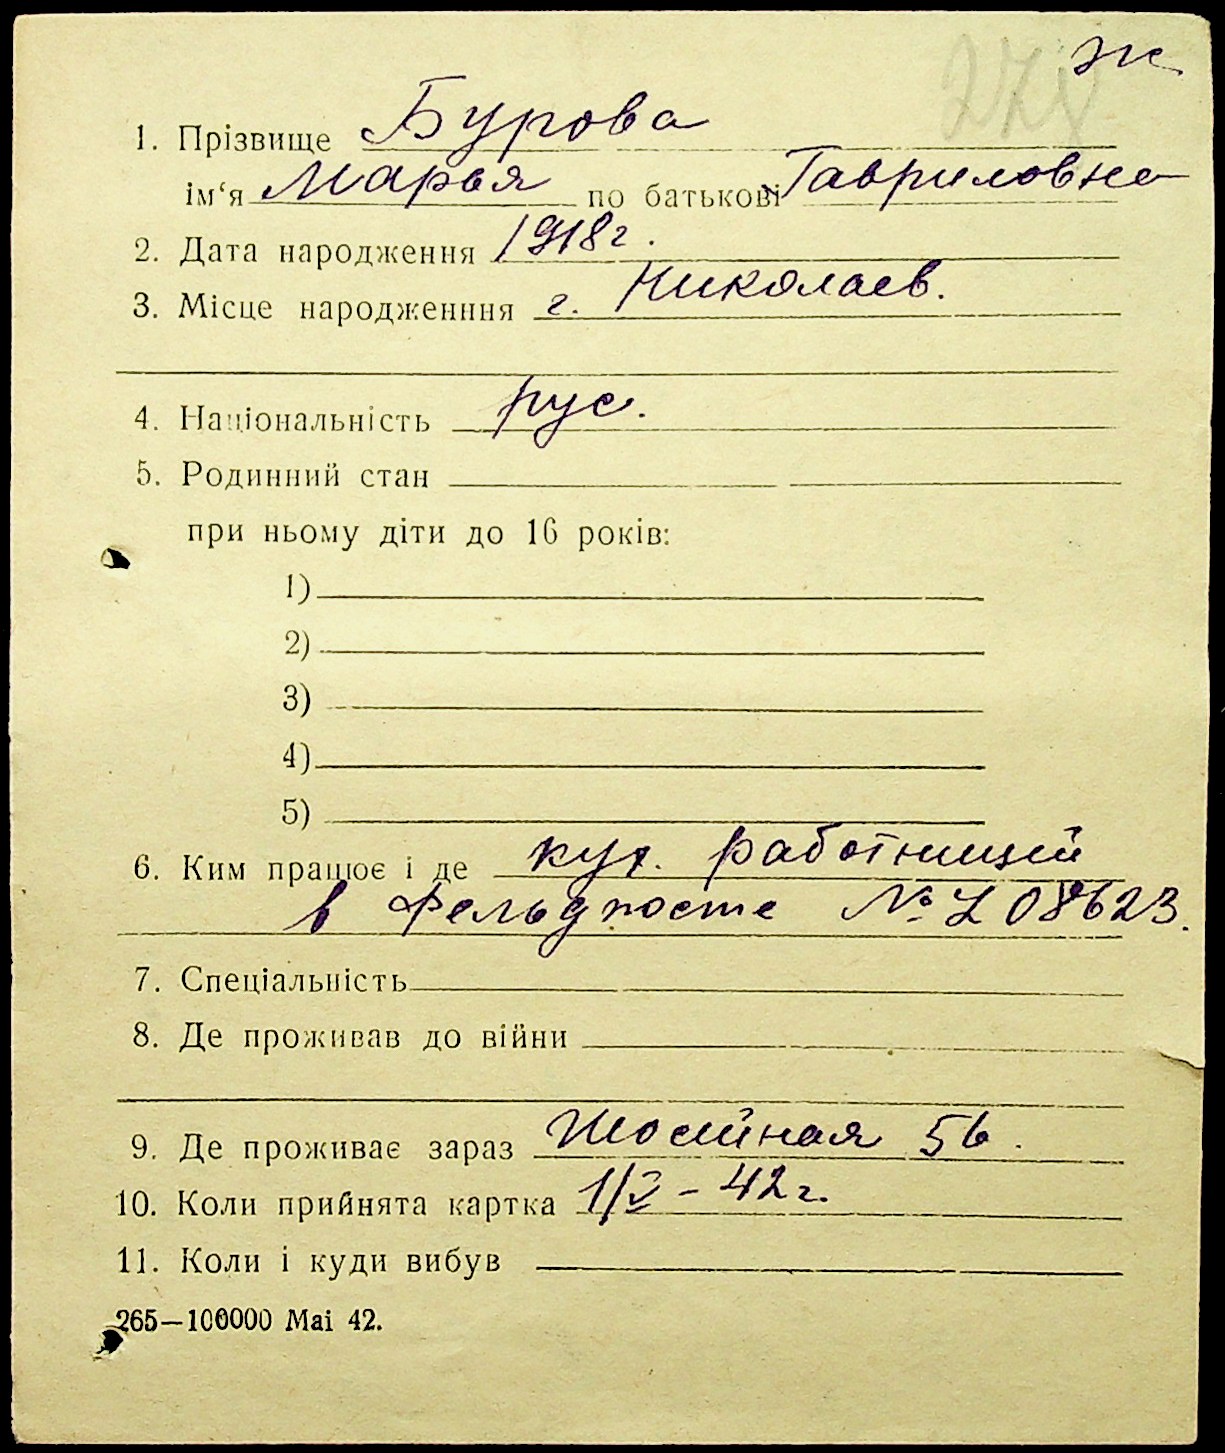 ж
1. Прізвище Бурова
ім‘я Марья по батькові Гавриловна
2. Дата народження 1918 г.
3. Місце народженння г. Николаев.
4. Національність рус.
5. Родинний стан
при ньому діти до 16 років:
1)
2)
3)
4)
5)
6. Ким працює і де кух. работницей
в Фельдпосте № L 08623.
7. Спеціальність
8. Де проживав до війни
9. Де проживає зараз 56.
10. Коли прийнята картка 1/V – 42 г.
11. Коли і куди вибув
265—100000 Mai 42.